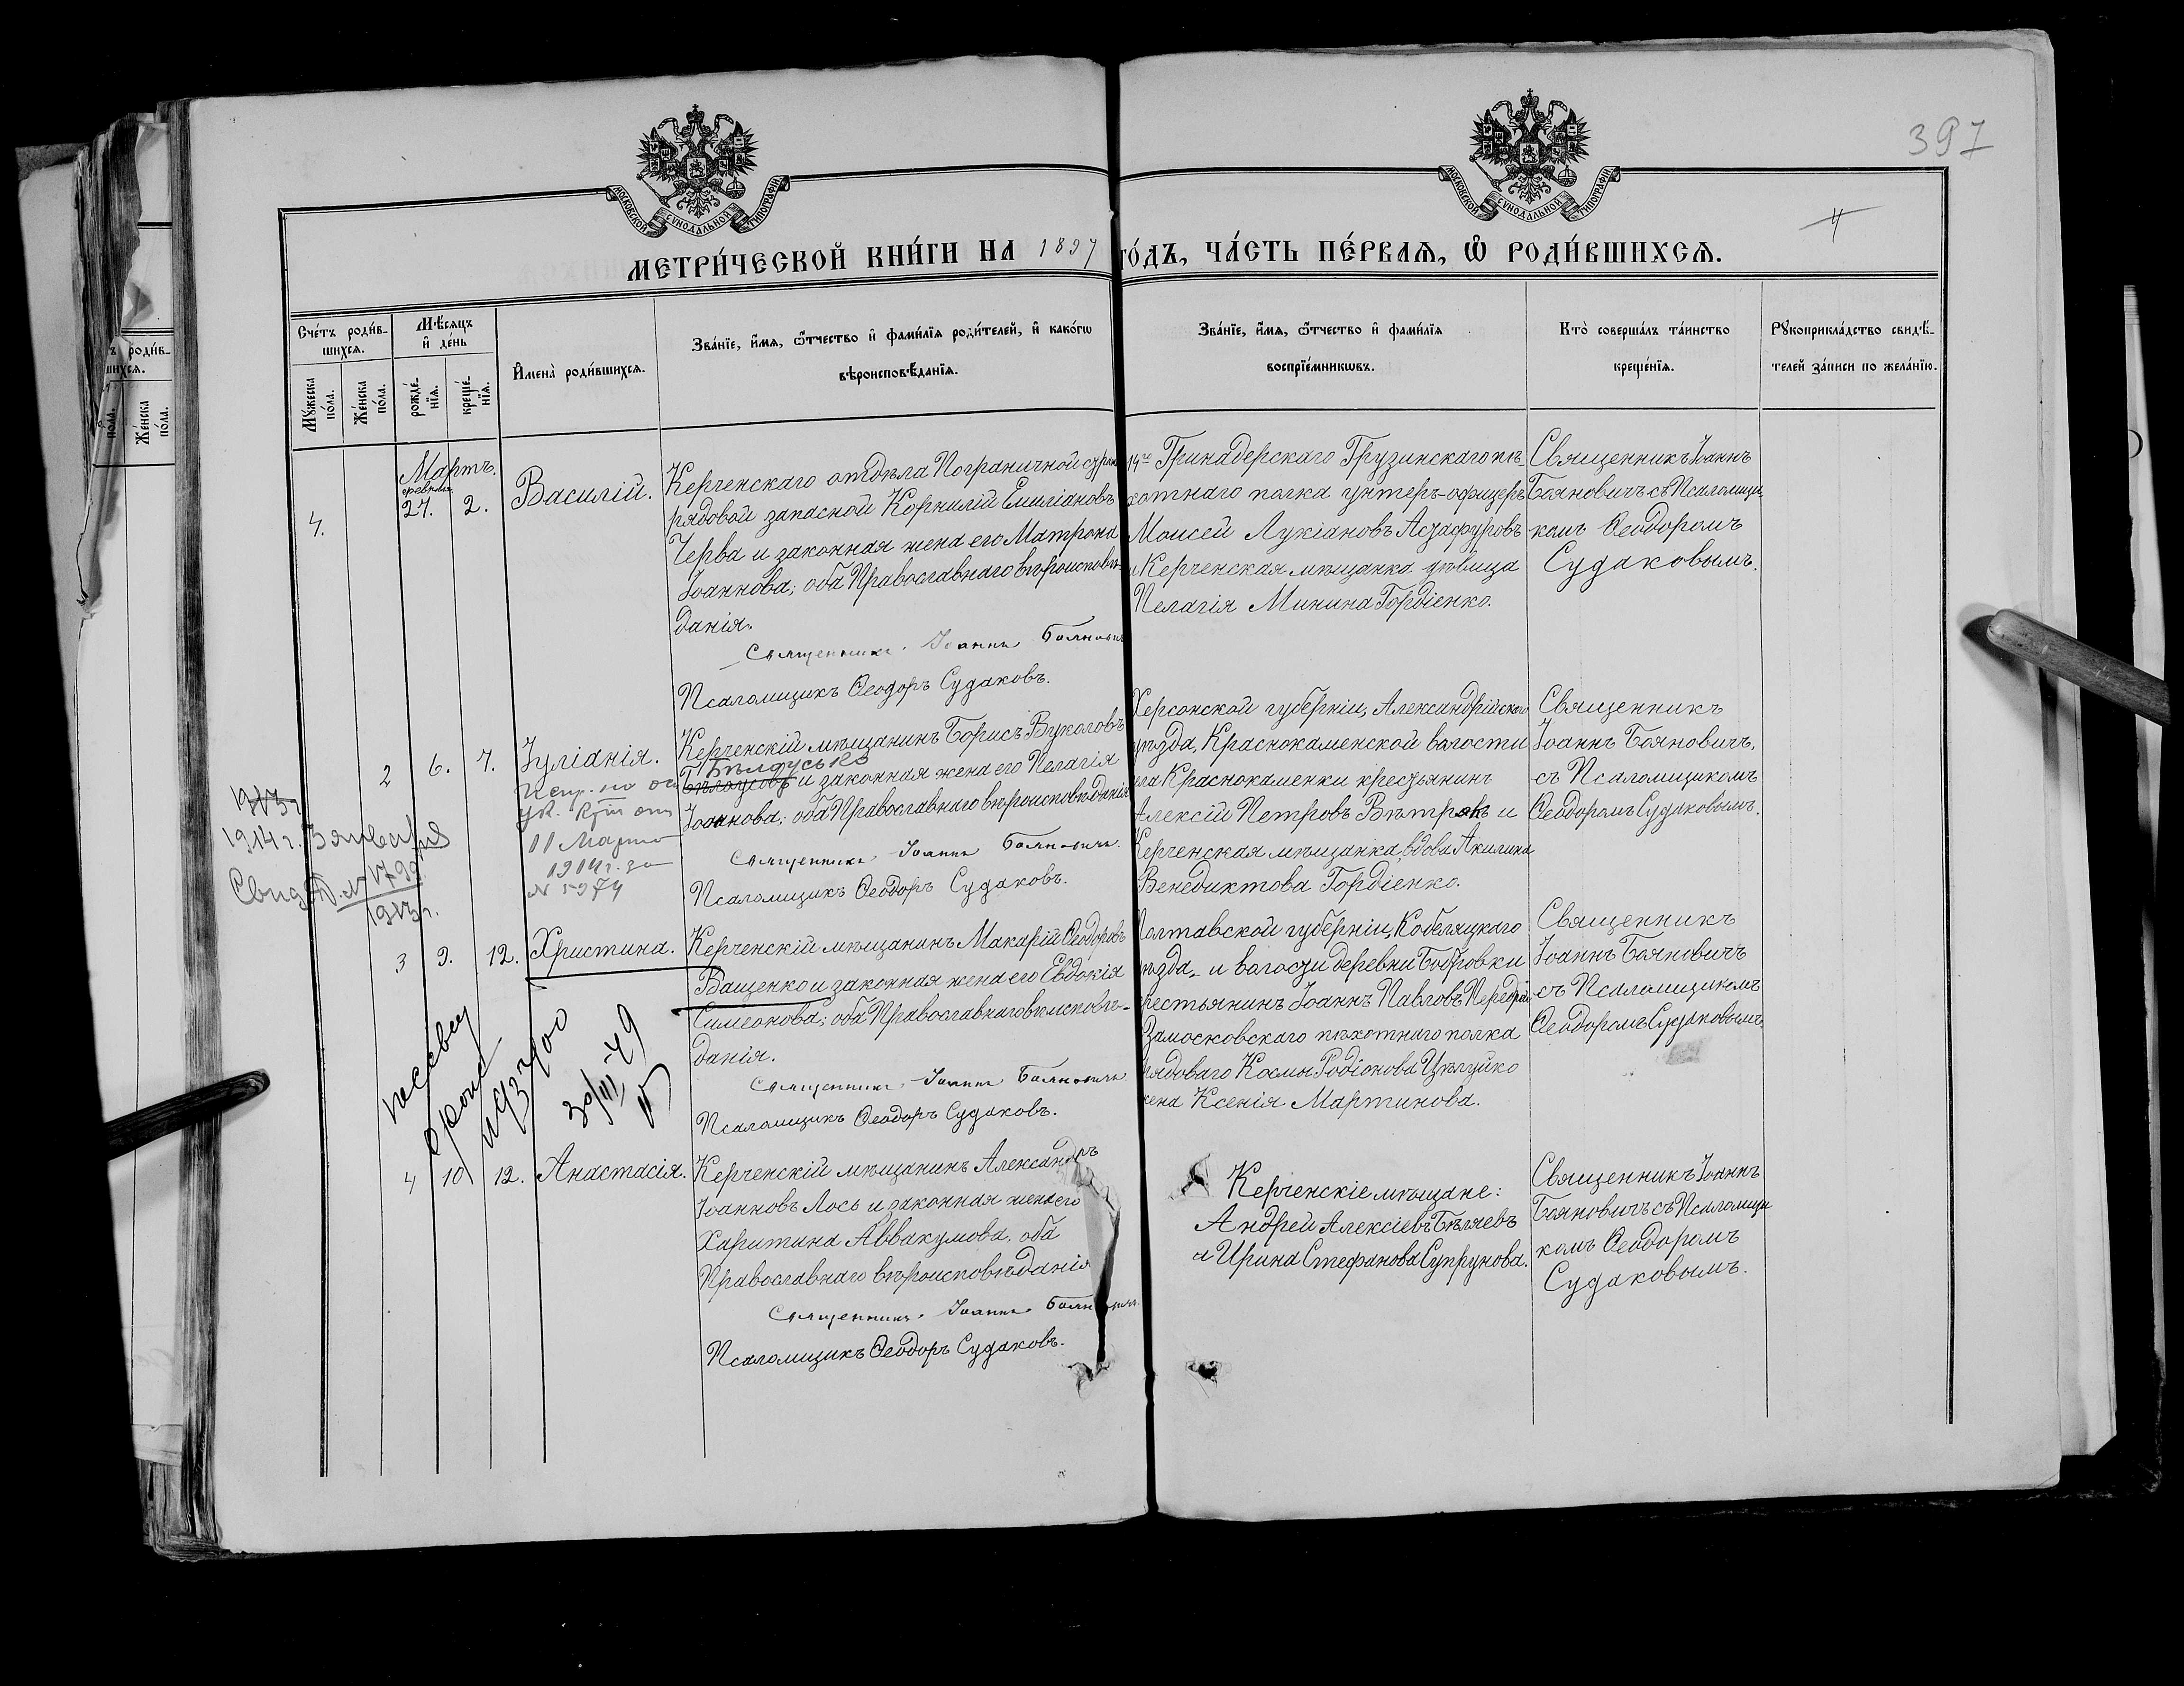 397
4
МОСКОВСКОЙ СУНОДАЛЬНОЙ ТИПОГРАФІИ
МОСКОВСКОЙ СУНОДАЛЬНОЙ ТИПОГРАФІИ
МЕТРИ́ЧЕСКОЙ КНИ́ГИ НА 1897 ГО́ДЪ, ЧА́СТЬ ПЕ́РВАЯ, Ѽ РОДИ́ВШИХСЯ.
Сче́тъ роди́в-
шихся.
Му́жеска по́ла.
Же́нска по́ла.
Мѣ́сяцъ и де́нь
рожде́-
нїя.
креще́-
нїя.
Имена̀ роди́вшихся.
Зва́нїе, и́мя, ѻ҆́тчество и фами́лїя роди́телей, и како́гѡ
вѣроисповѣ́данїя.
Зва́нїе, и́мя, ѻ҆́тчество и фами́лїя
воспрїе́мникѡвъ.
Кто̀ соверша́лъ та́инство
креще́нїя.
Рꙋкоприкла́дство свидѣ́-
телей за́писи по жела́нїю.
Мартъ.
февраля
4.
27.
2.
Василій.
Керченскаго отдѣла Пограничной стражи
рядовой запасной Корнилій Емиліановъ
Черва и законная жена его Матрона
Іоаннова; оба Православнаго вѣроисповѣ-
данія.
Священникъ Іоаннъ Бояновичъ
Псаломщикъ Ѳеодоръ Судаковъ.
14го Гринадерскаго Грузинскаго пѣ-
хотнаго полка унтеръ-офицеръ
Моисей Лукіановъ
и Керченская мѣщанка дѣвица
Пелагія Минина Гордіенко.
Священникъ Іоаннъ
Бояновичъ съ Псаломщи
комъ Ѳеодоромъ
Судаковымъ.
2
6.
7.
Іуліанія.
Испр. по
ук. от
11 Марта
1914 г. за
№ 5974
1913 г
1914 г. 3 января
Свидѣт. № 1799
1913 г.
Керченскій мѣщанинъ Борисъ Вуколовъ
Бѣлоусько
Бѣлоусовъ и законная жена его Пелагія
Іоаннова; оба Православнаго вѣроисповѣданія
Священникъ Іоаннъ Бояновичъ
Псаломщикъ Ѳеодоръ Судаковъ.
Херсонской губерніи, Александрійскаго
уѣзда, Краснокаменской волости
села Краснокаменки крестьянинъ
Алексій Петровъ Вѣтрякъ и
Керченская мѣщанка, вдова Акилина
Венедиктова Гордіенко.
Священникъ
Іоаннъ Бояновичъ,
съ Псаломщикомъ
Ѳеодоромъ Судаковымъ.
3
9.
12.
Христина.
30/III-49
Керченскій мѣщанинъ Макарій Ѳеодоровъ
Ващенко и законная жена его Евдокія
Симеонова; оба Православнаго вѣроисповѣ-
данія.
Священникъ Іоаннъ Бояновичъ
Псаломщикъ Ѳеодоръ Судаковъ.
Полтавской губерніи, Кобеляцкаго
уѣзда, и волости деревни Бобровки
крестьянинъ Іоаннъ Павловъ
Замосковскаго пѣхотнаго полка
рядоваго Космы Родіонова Цѣлуйко
жена Ксенія Мартинова.
Священникъ
Іоаннъ Бояновичъ
съ Псаломщикомъ
Ѳеодоромъ Судаковымъ.
4
10
12.
Анастасія.
Керченскій мѣщанинъ Александръ
Іоанновъ Лось и законная жена его
Харитина Аввакумова. оба
Православнаго вѣроисповѣданія
Священникъ Іоаннъ Бояновичъ.
Псаломщикъ Ѳеодоръ Судаковъ.
Керченскіе мѣщане:
Андрей Алексіевъ Бѣляевъ
и Ирина Стефанова Супрунова.
Священникъ Іоаннъ
Бояновичъ съ Псаломщи
комъ Ѳеодоромъ
Судаковымъ.